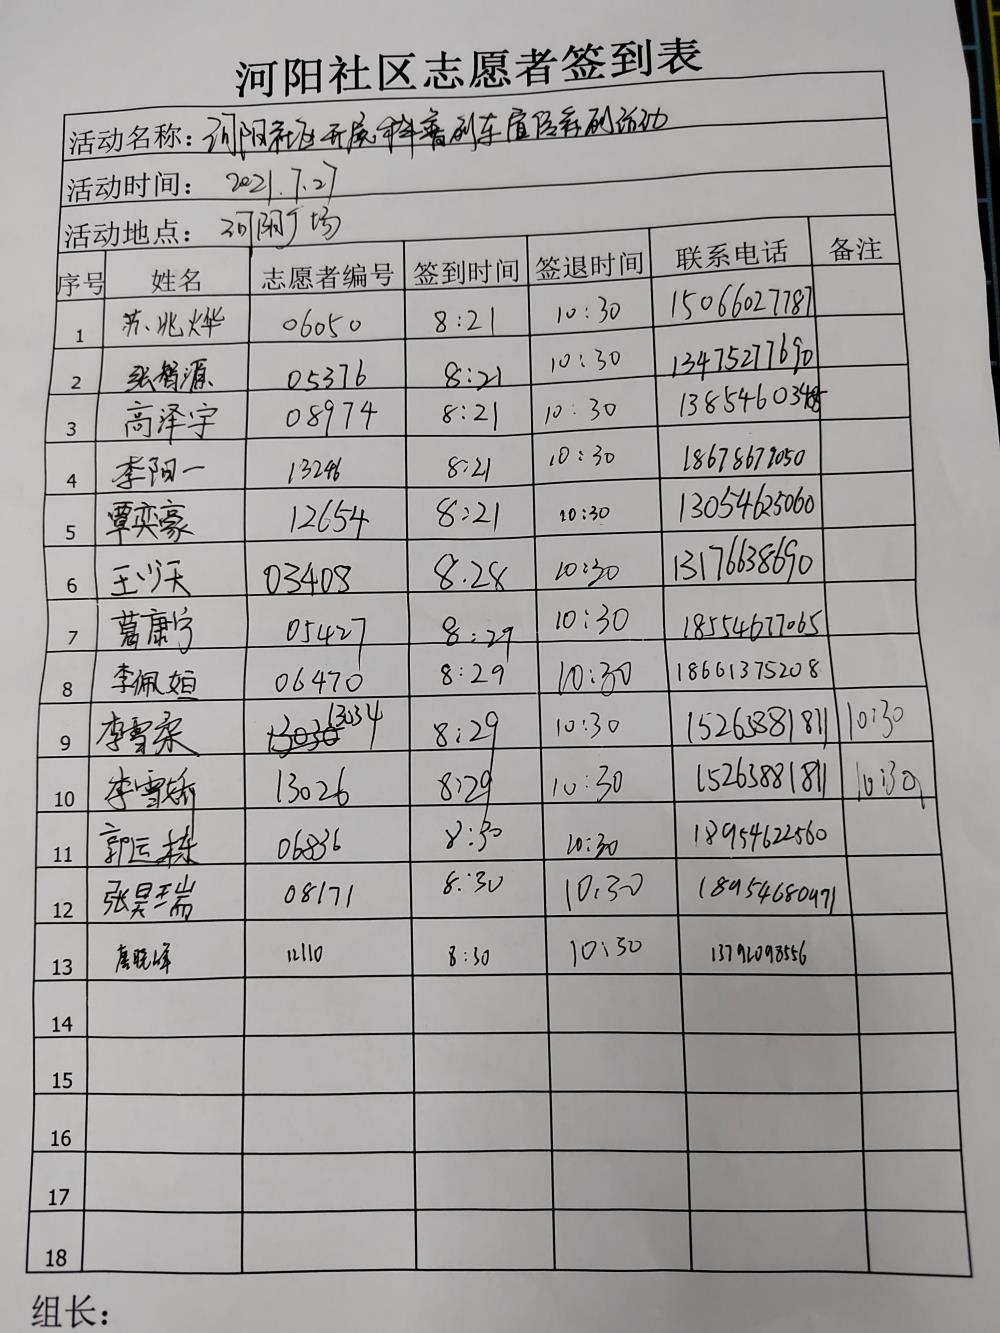 河阳社区志愿者签到表
活动名称：河阳社区开展科普列车宣传系列活动
活动时间： 2021.7.27
活动地点： 河阳广场
序号 姓名 志愿者编号 签到时间 签退时间 联系电话 备注
1 苏兆烨 06050 8:21 10:30 15066027787
2 张智源 05376 8:21 10:30 13475277690
3 高泽宇 08974 8:21 10:30
4 李阳一 13246 8:21 10:30 18678679050
5 覃奕豪 12654 8:21 10:30 13054625060
6 03408 8.28 10:30 13176638690
7 葛康宁 05427 8:29 10:30 18554677065
8 李佩姮 06470 8:29 10:30 18661375208
9 李雪柔 13034 8:29 10:30 15263881811 10:30
10 李雪娇 13026 8:29 10:30 15263881811 10:30
11 郭运栋 06836 8:30 10:30 18954622560
12 张昊瑞 08171 8:30 10:30 18954680971
13 唐晓峰 12110 8:30 10:30 13792098556
14
15
16
17
18
组长：